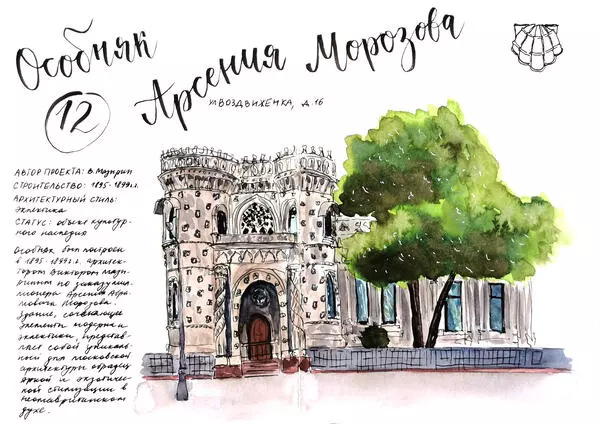 Особняк
Арсения Морозова
ул воздвиженка, д.16
12
Автор проекта: В. Мазырин
Строительство: 1895-1899 г.г.
Архитектурный стиль:
эклектика
Статус: объект культур-
ного наследия
Особняк был построен
в 1895-1899 г.г. архитек-
тором Виктором Мазы-
риным по заказу мил-
лионера Арсения Абра-
мовича Морозова.
Здание, сочетающее
элементы модерна и
эклектики, представ-
ляет собой уникаль-
ный для московской
архитектуры образец
яркой и экзотичес-
кой стилизации в
неомавританском
духе.